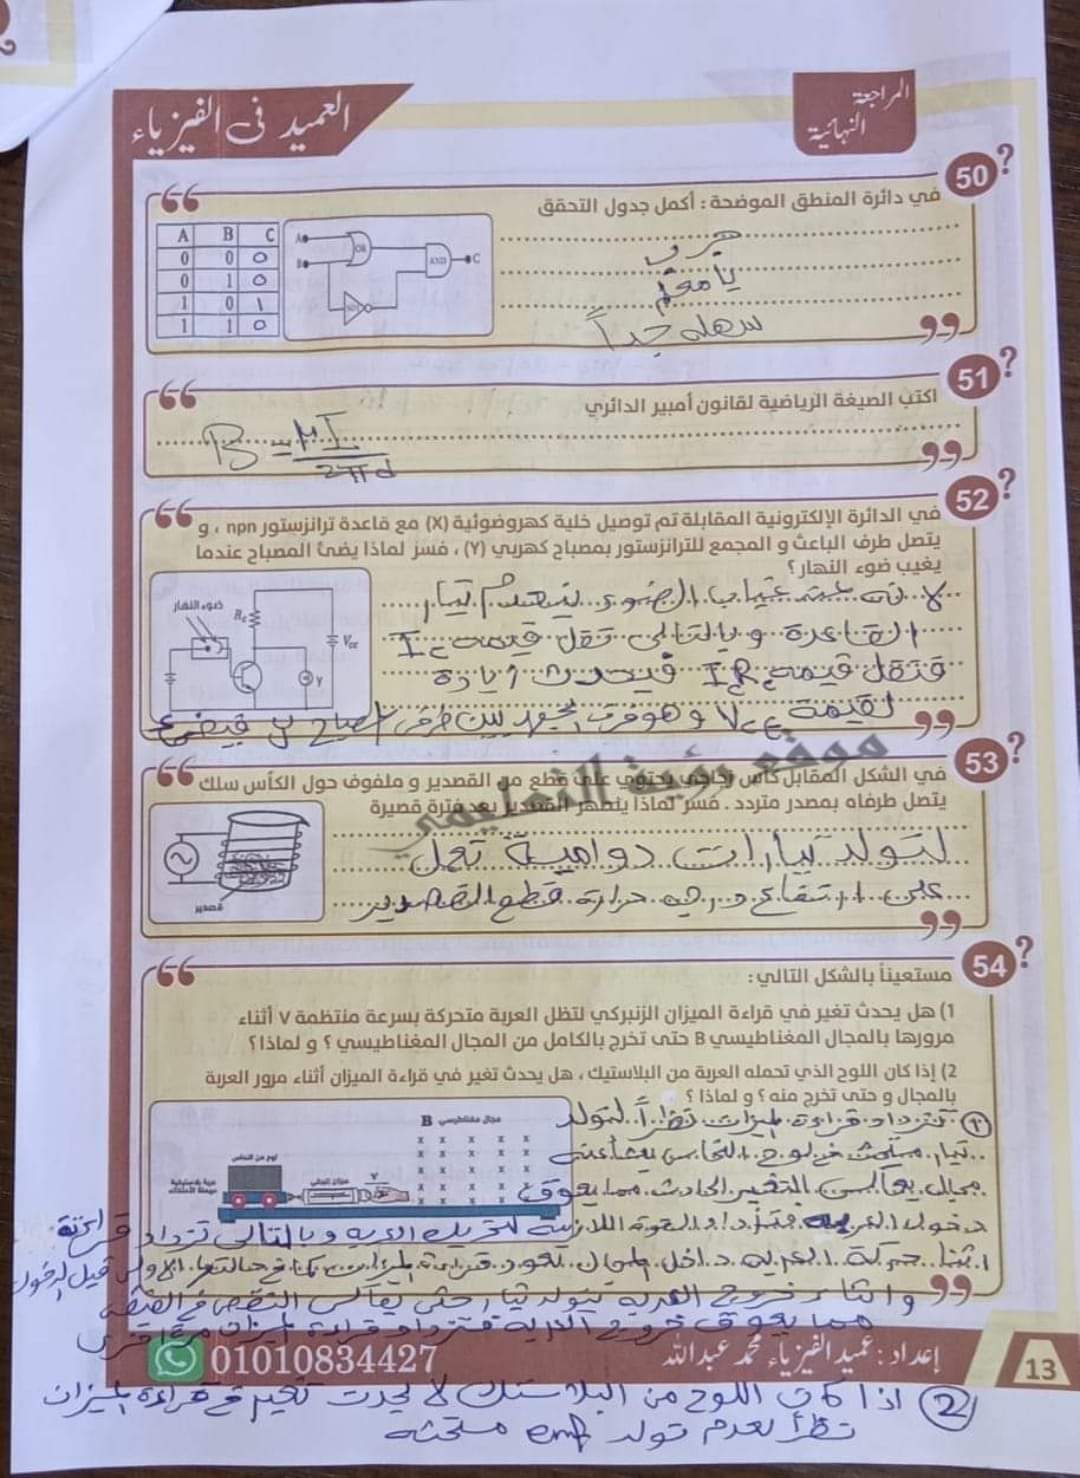 المراجعة
النهائية
العميد فى الفيزياء
50
في دائرة المنطق الموضحة : أكمل جدول التحقق
A B C
0 0 0
0 1 0
1 0 1
1 1 0
A
B
OR
AND
C
جرب
يا معلم
سهله جداً
51
اكتب الصيغة الرياضية لقانون أمبير الدائري
B = μI / 2πd
52
في الدائرة الإلكترونية المقابلة تم توصيل خلية كهروضوئية (X) مع قاعدة ترانزستور npn ، و
يتصل طرف الباعث و المجمع للترانزستور بمصباح كهربي (Y) ، فسر لماذا يضئ المصباح عندما
يغيب ضوء النهار؟
ضوء النهار
Rc
Vcc
Y
لانه عند غياب الضوء ينعدم تيار
القاعدة وبالتالى تقل قيمة Ic
فتقل قيمة IcRc فيحدث زيادة
لقيمة VCE وهو فرق الجهد بين طرفى المصباح y فيضئ
موقع رؤية التعليمي
53
في الشكل المقابل كأس زجاجي يحتوي على قطع من القصدير و ملفوف حول الكأس سلك
يتصل طرفاه بمصدر متردد . فسر لماذا ينصهر القصدير بعد فترة قصيرة
قصدير
لتولد تيارات دوامية تعمل
على ارتفاع درجه حرارة قطع القصدير
54
مستعيناً بالشكل التالي :
1) هل يحدث تغير في قراءة الميزان الزنبركي لتظل العربة متحركة بسرعة منتظمة V أثناء
مرورها بالمجال المغناطيسي B حتى تخرج بالكامل من المجال المغناطيسي ؟ و لماذا ؟
2) إذا كان اللوح الذي تحمله العربة من البلاستيك ، هل يحدث تغير في قراءة الميزان أثناء مرور العربة
بالمجال و حتى تخرج منه ؟ و لماذا ؟
مجال مغناطيسي B
لوح من النحاس
ميزان زنبركي
V
① تزداد قراءة الميزان نظراً لتولد
تيار مستحث فى لوح النحاس ينشأ عنه
مجال يعاكس التغير الحادث مما يعوق
دخول العربه فتزداد القوة اللازمة لتحريك العربه وبالتالى تزداد قراءته
اثناء حركة العربه داخل المجال تعود قراءة الميزان كما فى حالتها الاولى قبل الدخول
واثناء خروج العربه يتولد تيار حتى يعاكس النقص فى الفيض
مما يعوق خروج العربه فتزداد قراءة الميزان مرة اخرى
01010834427
إعداد : عميد الفيزياء محمد عبدالله
13
② اذا كان اللوح من البلاستك لا يحدث تغير فى قراءة الميزان
نظراً لعدم تولد emf مستحثه